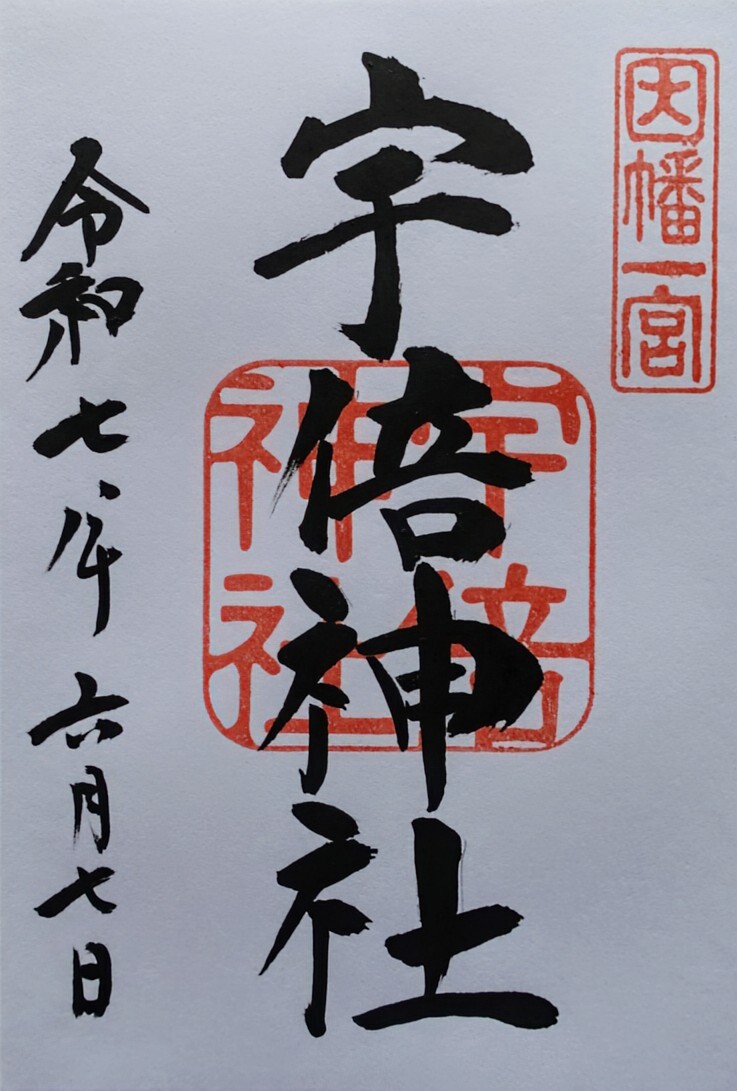 因幡一宮
宇倍神社
宇倍
神社
令和七年六月七日